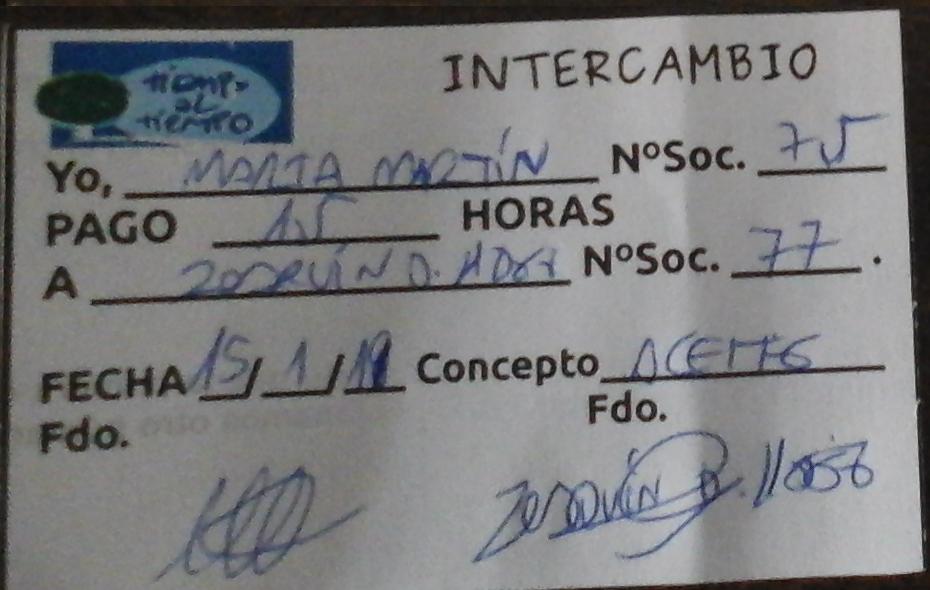 tiempo
al
tiempo
INTERCAMBIO
Yo, MARTA MARTÍN NºSoc. 75
PAGO 1,5 HORAS
A NºSoc. 77.
FECHA 15/1/19 Concepto ACEITES
Fdo. Fdo.